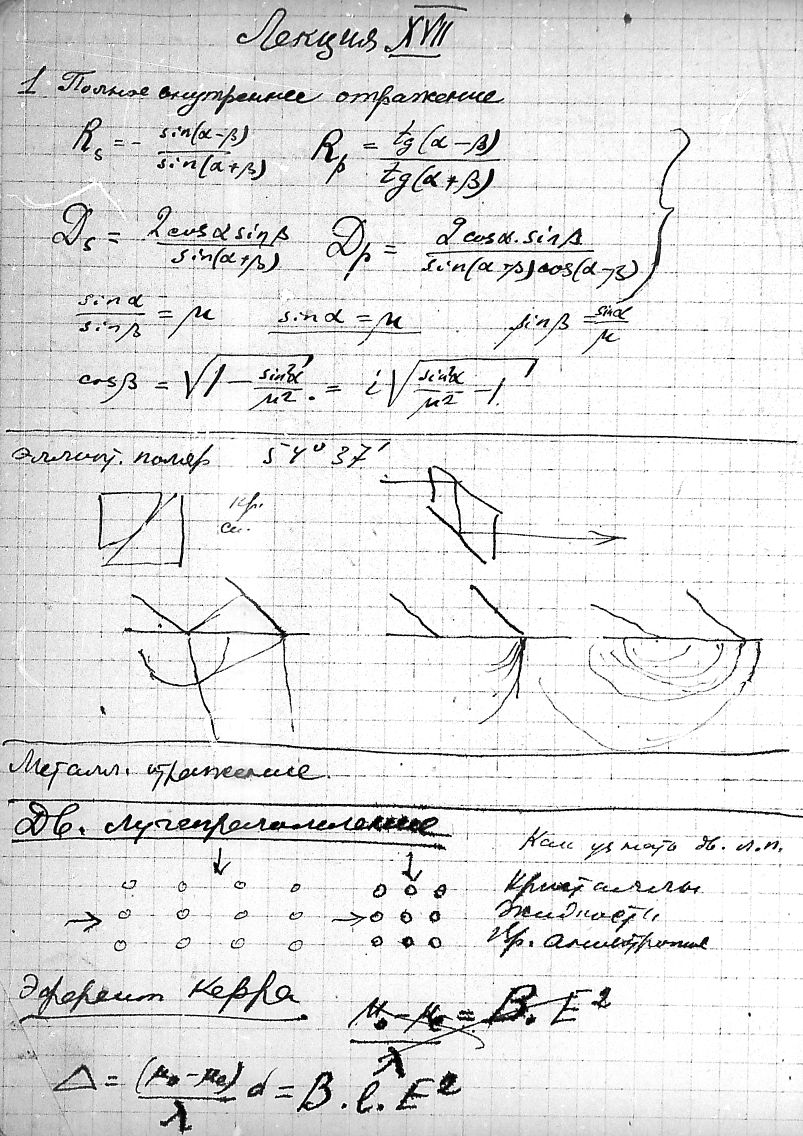 Лекция XVII
1 Полное внутреннее отражение
R_s = - sin(α-β)/sin(α+β) R_p = tg(α-β)/tg(α+β)
D_s = 2cosα sinβ/sin(α+β) D_p = 2cosα·sinβ/sin(α+β)cos(α-β)
sinα/sinβ = μ sinα = μ sinβ = sinα/μ
cosβ = √(1 - sin²α/μ²) = i√(sin²α/μ² - 1)
Эллипт. поляр 54° 37'
Металл. отражение.
Дв. лучепреломление
Как узнать дв. л.п.
Кристаллы
Жидкости
Эффект Керра
μ₀ - μₑ/λ = B. E²
Δ = (μ₀ - μₑ)/λ d = B. l. E²